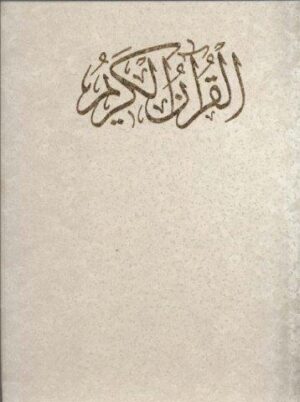 القُرآنُ الكَرِيمُ